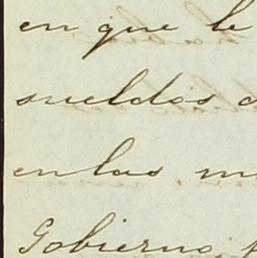 en que le
sueldos
en las
Gobierno